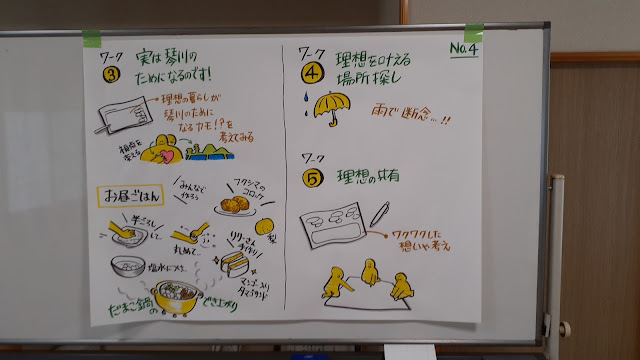 No.4
ワーク
③
実は琴川の
ためになるのです!
理想の暮らしが
琴川のために
なるカモ!?を
考えてみる
視点を
変える
お昼ごはん
みんなで
作ろう
フクシマの
コロッケ
半ごろし
して
丸めて…
梨
塩水につけ…
手作り
マンゴー入り
タマゴサンド
だまこ鍋の
でき上がり
ワーク
④
理想を叶える
場所探し
雨で断念…!!
ワーク
⑤
理想の共有
ワクワクした
想いや考え